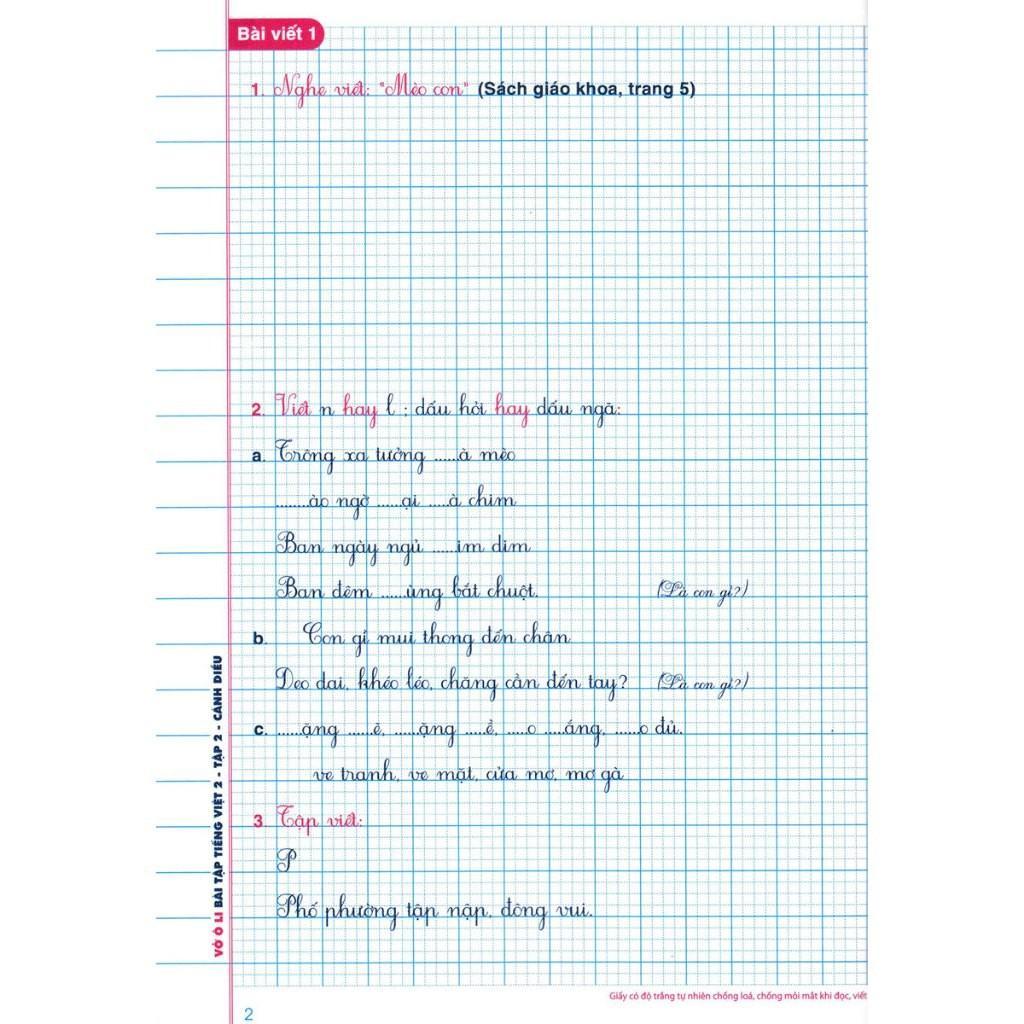 Bài viết 1
1. Nghe viết: "Mèo con" (Sách giáo khoa, trang 5)
2. Viết n hay l ; dấu hỏi hay dấu ngã:
a. Trông xa tưởng .....à mèo
........ào ngờ ......ại .....à chim
Ban ngày ngủ ......im dim
Ban đêm ......ùng bắt chuột. (Là con gì?)
b. Con gì mui thong đến chân
Deo dai, khéo léo, chăng cần đến tay? (Là con gì?)
c. ......ặng ......ẽ, ......ặng .....ề, .....o .....áng, ......o đủ.
ve tranh, ve mặt, cửa mơ, mơ gà
3. Tập viết:
P
Phố phường tập nập, đông vui.
VỞ Ô LI BÀI TẬP TIẾNG VIỆT 2 - TẬP 2 - CÁNH DIỀU
Giấy có độ trắng tự nhiên chống loá, chống mỏi mắt khi đọc, viết
2